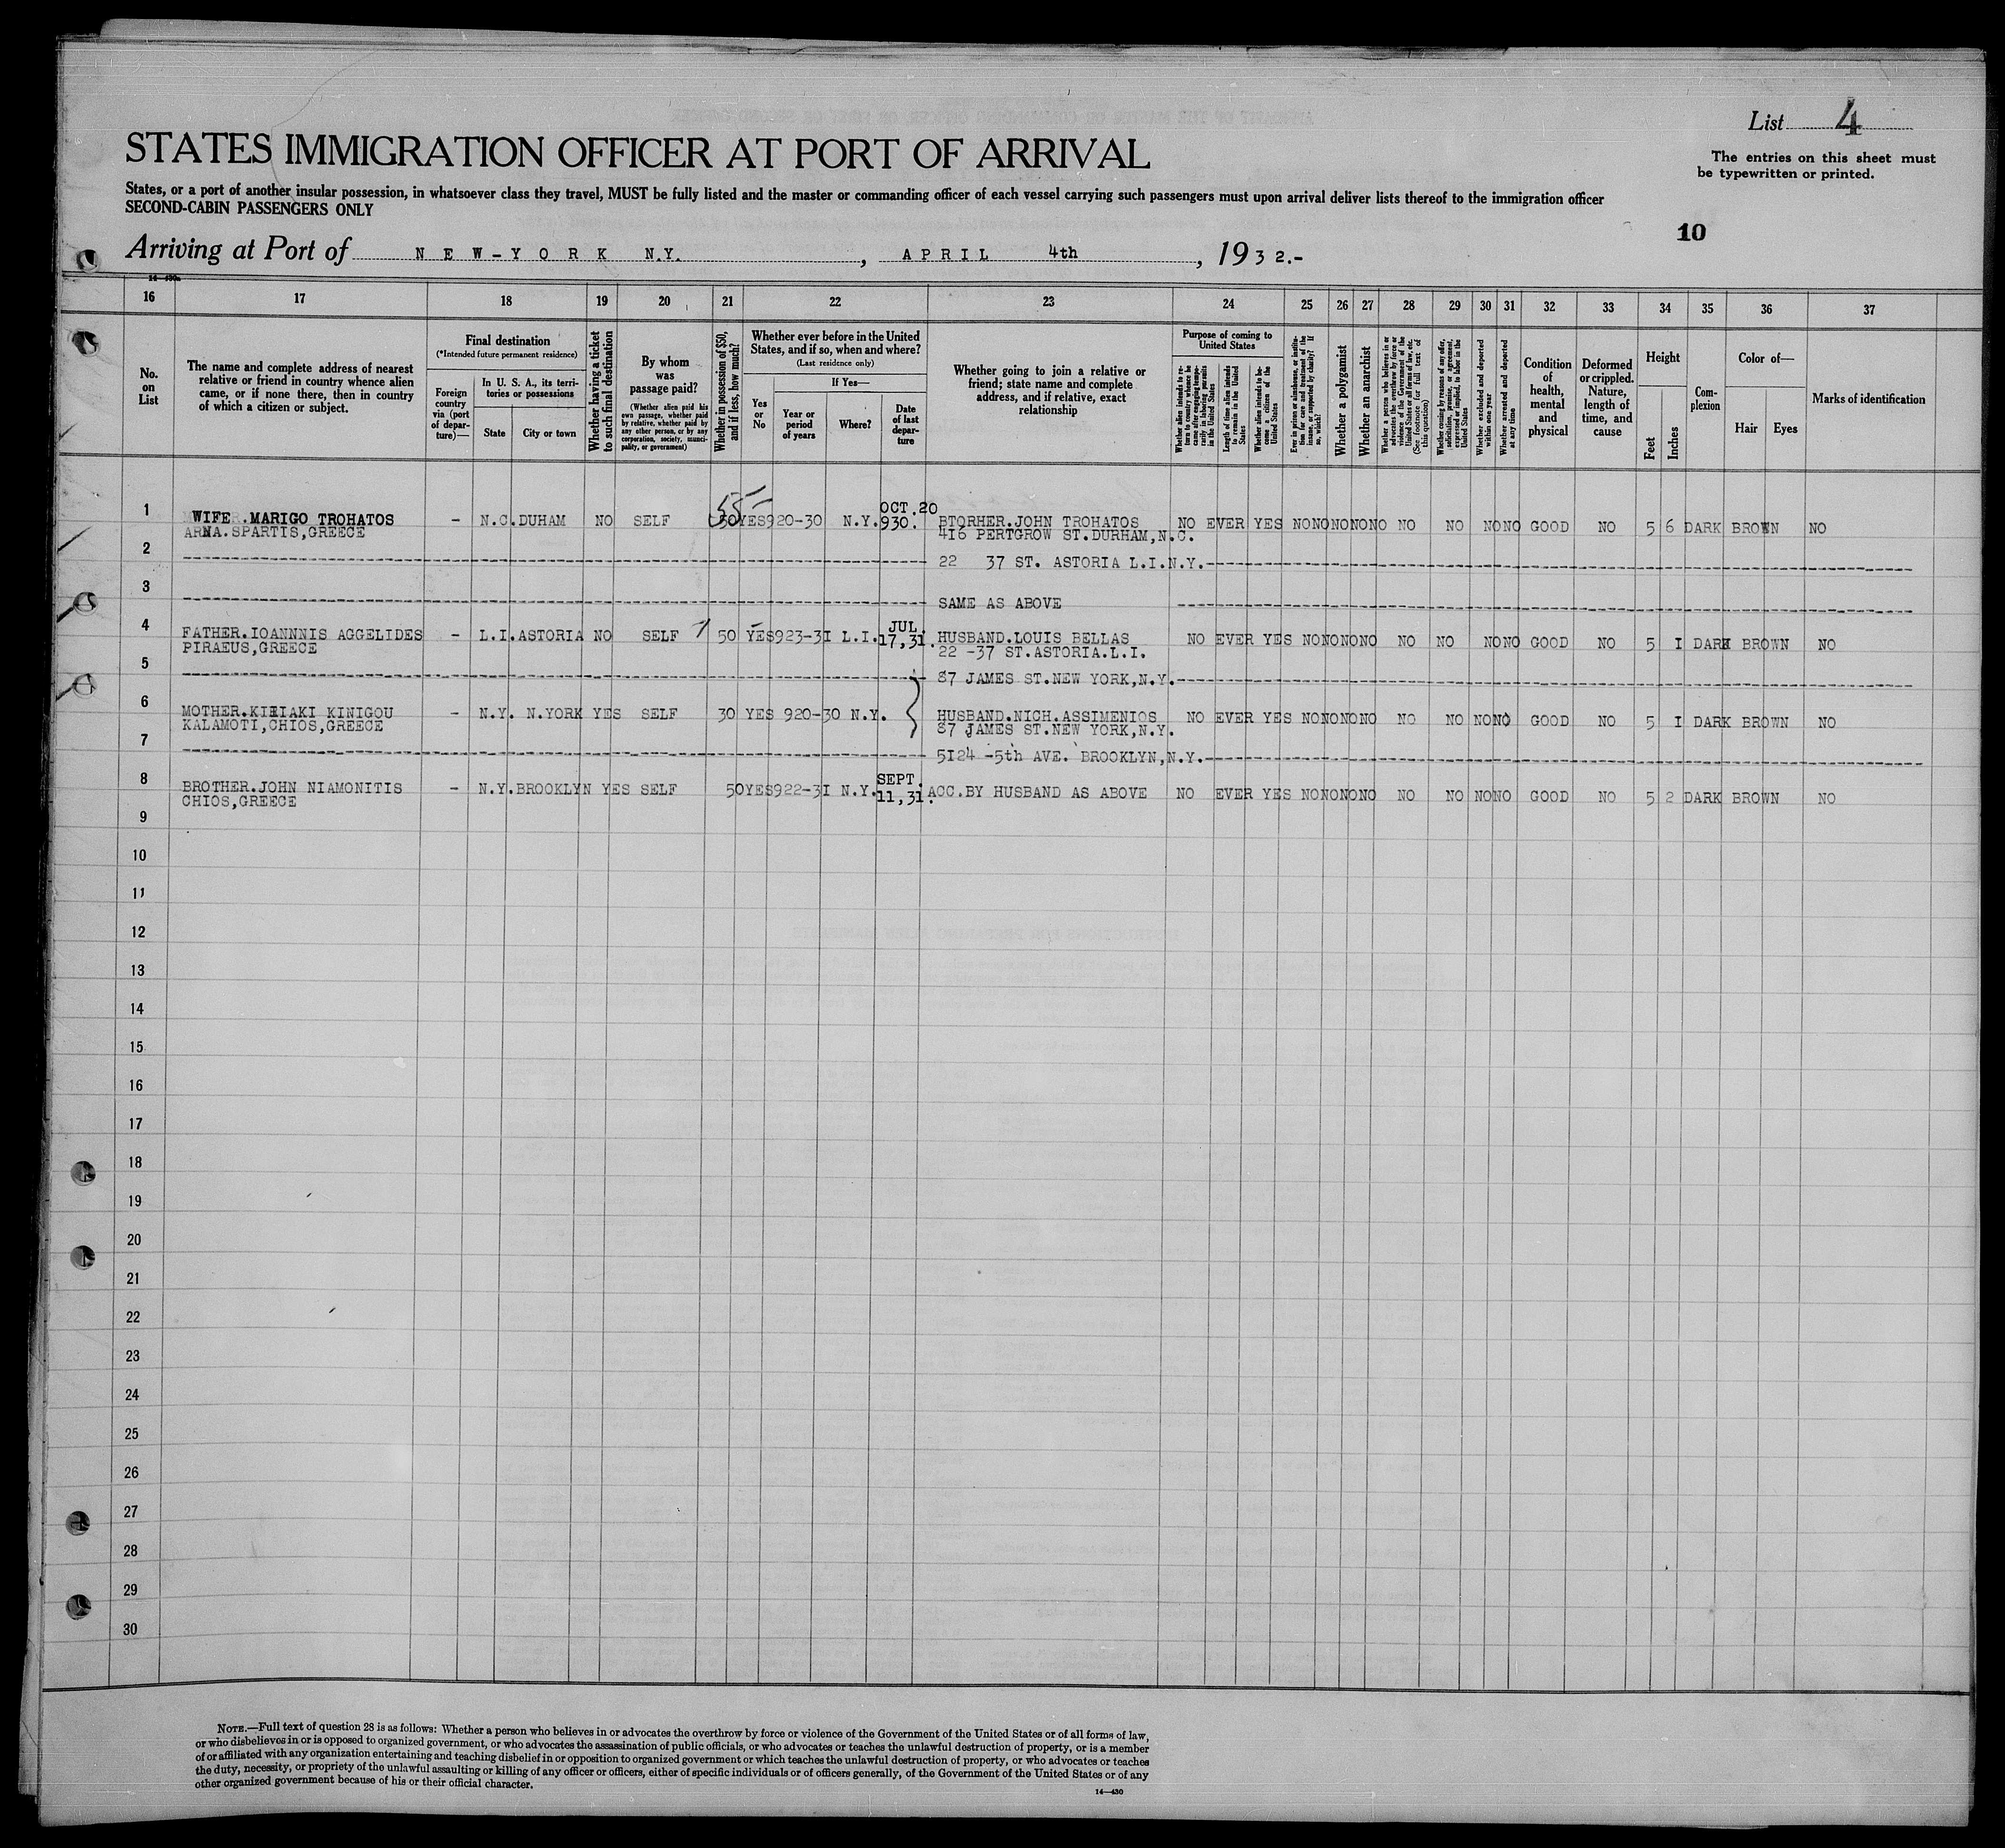 List 4
STATES IMMIGRATION OFFICER AT PORT OF ARRIVAL
The entries on this sheet must
be typewritten or printed.
States, or a port of another insular possession, in whatsoever class they travel, MUST be fully listed and the master or commanding officer of each vessel carrying such passengers must upon arrival deliver lists thereof to the immigration officer
SECOND-CABIN PASSENGERS ONLY
10
Arriving at Port of NEW-YORK N.Y. , APRIL 4th , 1932.-
16 17 18 19 20 21 22 23 24 25 26 27 28 29 30 31 32 33 34 35 36 37
No. on List
The name and complete address of nearest relative or friend in country whence alien came, or if none there, then in country of which a citizen or subject.
Final destination
(*Intended future permanent residence)
Foreign country via (port of departure)—
In U. S. A., its territories or possessions
State
City or town
Whether having a ticket to such final destination
By whom was passage paid?
(Whether alien paid his own passage, whether paid by relative, whether paid by any other person, or by any corporation, society, municipality, or government)
Whether in possession of $50, and if less, how much?
Whether ever before in the United States, and if so, when and where?
(Last residence only)
Yes or No
If Yes—
Year or period of years
Where?
Date of last departure
Whether going to join a relative or friend; state name and complete address, and if relative, exact relationship
Purpose of coming to United States
Length of time alien intends to remain in the United States
Whether alien intends to become a citizen of the United States
Whether a polygamist
Whether an anarchist
Whether excluded and deported within one year
Whether arrested and deported at any time
Condition of health, mental and physical
Deformed or crippled. Nature, length of time, and cause
Height
Feet
Inches
Complexion
Color of—
Hair
Eyes
Marks of identification
55
OCT.20
1 WIFE.MARIGO TROHATOS - N.C. DUHAM NO SELF 50 YES 920-30 N.Y. 930. BTORHER.JOHN TROHATOS NO EVER YES NO NO NO NO NO NO NO NO NO GOOD NO 5 6 DARK BROWN NO
ARNA.SPARTIS,GREECE 416 PERTGROW ST.DURHAM,N.C.
2 22 37 ST. ASTORIA L.I.N.Y.
3 SAME AS ABOVE
JUL.
4 FATHER.IOANNNIS AGGELIDES - L.I. ASTORIA NO SELF 50 YES 923-3I L.I. 17,31. HUSBAND.LOUIS BELLAS NO EVER YES NO NO NO NO NO NO NO NO NO GOOD NO 5 I DARK BROWN NO
PIRAEUS,GREECE 22 -37 ST.ASTORIA.L.I.
5 87 JAMES ST.NEW YORK,N.Y.
6 MOTHER.KIRIAKI KINIGOU - N.Y. N.YORK YES SELF 30 YES 920-30 N.Y. HUSBAND.NICH.ASSIMENIOS NO EVER YES NO NO NO NO NO NO NO NO GOOD NO 5 I DARK BROWN NO
KALAMOTI,CHIOS,GREECE 87 JAMES ST.NEW YORK,N.Y.
7 5I24 -5th AVE. BROOKLYN,N.Y.
SEPT.
8 BROTHER.JOHN NIAMONITIS - N.Y. BROOKLYN YES SELF 50 YES 922-3I N.Y. 11,31. ACC.BY HUSBAND AS ABOVE NO EVER YES NO NO NO NO NO NO NO NO GOOD NO 5 2 DARK BROWN NO
CHIOS,GREECE
9
10
11
12
13
14
15
16
17
18
19
20
21
22
23
24
25
26
27
28
29
30
NOTE.—Full text of question 28 is as follows: Whether a person who believes in or advocates the overthrow by force or violence of the Government of the United States or of all forms of law,
or who disbelieves in or is opposed to organized government, or who advocates the assassination of public officials, or who advocates or teaches the unlawful destruction of property, or is a member
of or affiliated with any organization entertaining and teaching disbelief in or opposition to organized government or which teaches the unlawful destruction of property, or who advocates or teaches
the duty, necessity, or propriety of the unlawful assaulting or killing of any officer or officers, either of specific individuals or of officers generally, of the Government of the United States or of any
other organized government because of his or their official character.
14—430